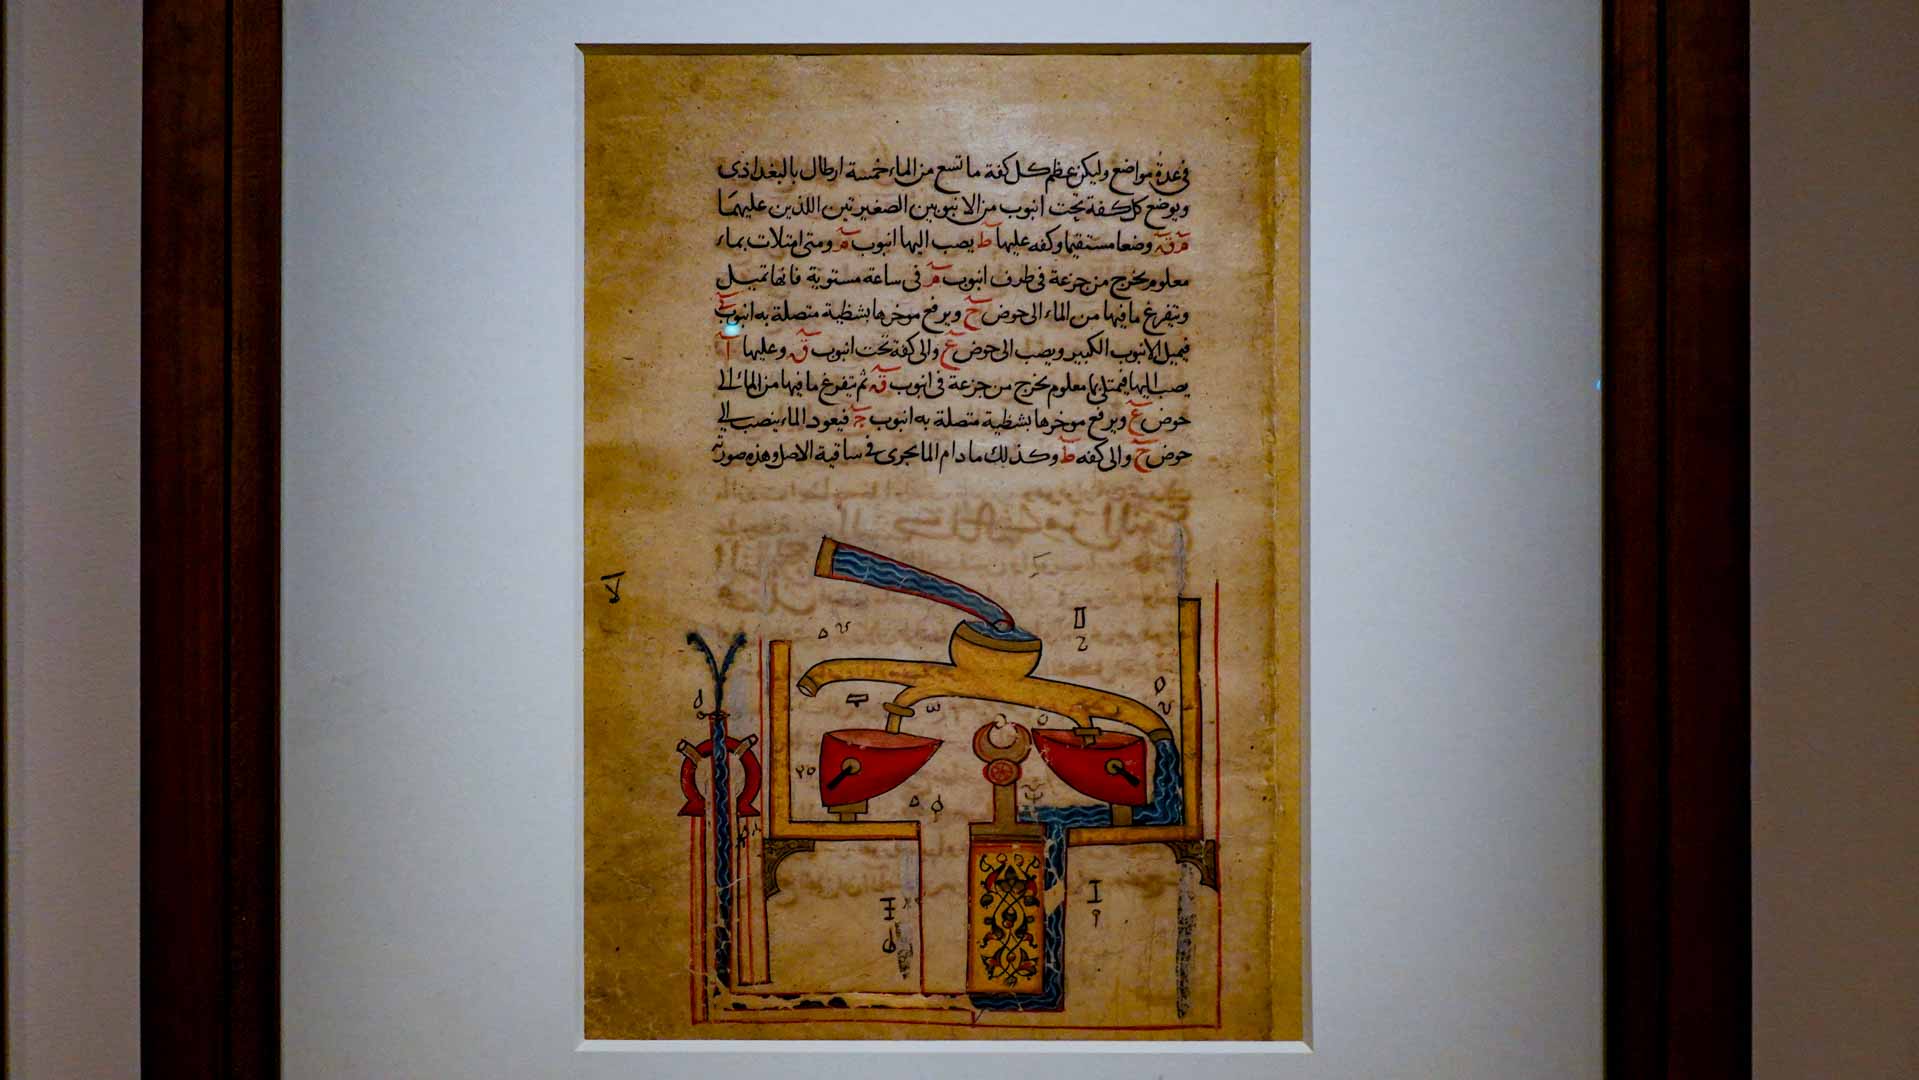 في عدة مواضع وليكن عظم كل كفة ما تسع من الماء خمسة ارطال بالبغداذي
ويوضع كل كفة تحت انبوب من الانبوبين الصغيرتين اللذين عليهما
م ق وضعا مستقيما وكفه عليها ط يصب اليها انبوب م ومتى امتلات بماء
معلوم يخرج من جزعة في طرف انبوب م في ساعة مستوية فانها تميل
ويتفرغ ما فيها من الماء الى حوض ح ويرفع موخرها بشظية متصلة به انبوب
فيميل الانبوب الكبير ويصب الى حوض ع والى كفة تحت انبوب ق وعليها آ
يصب اليها فيمتلى بما معلوم يخرج من جزعة في انبوب ق ثم يتفرغ ما فيها من الماء الى
حوض ع ويرفع موخرها بشظية متصلة به انبوب فيعود الماء ينصب الى
حوض ح والى كفه ط وكذلك ما دام الما يجرى في ساقية الاصل وهذه صورته